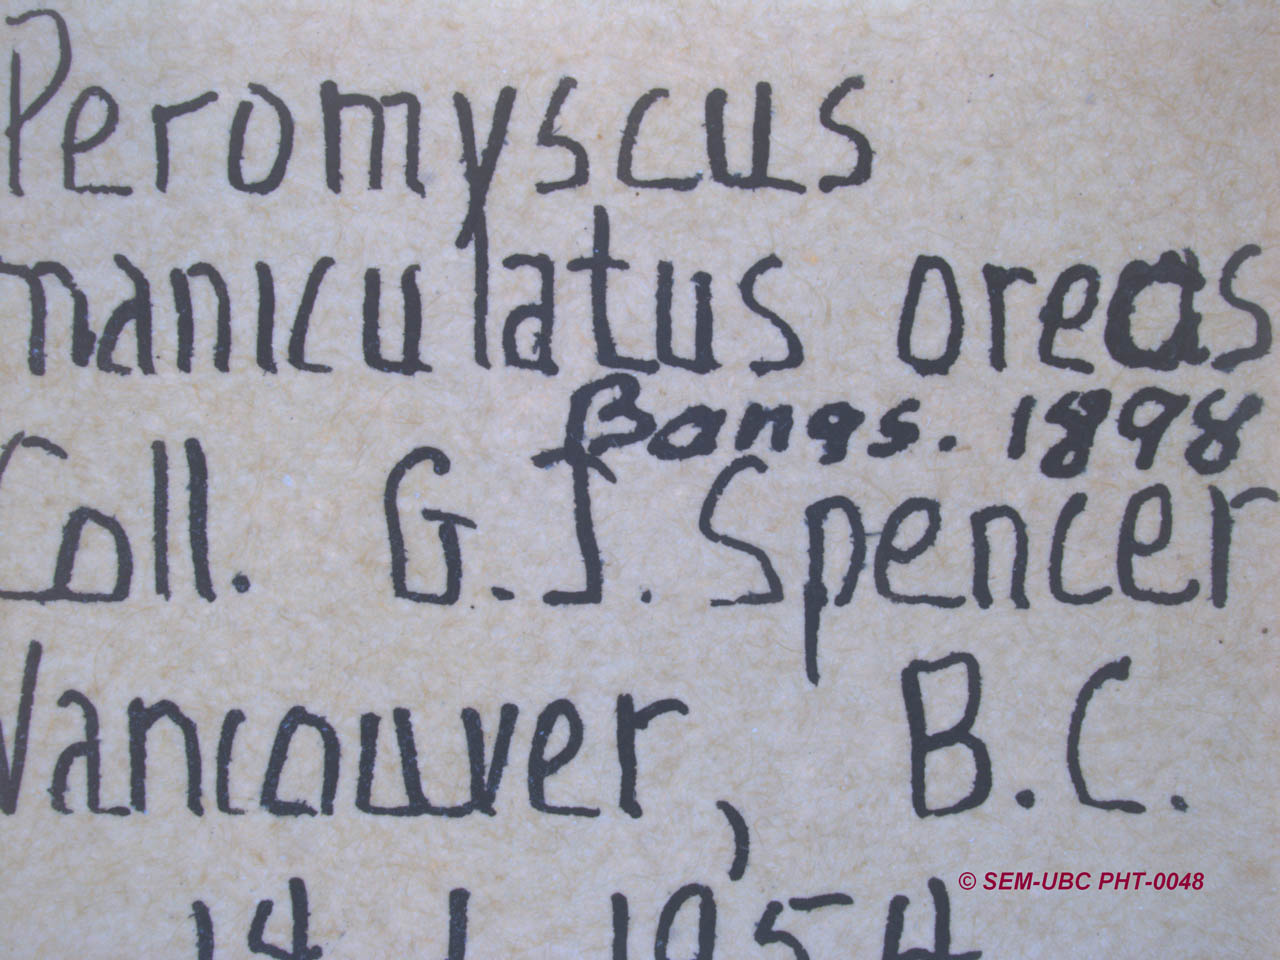 Peromyscus
maniculatus oreas
Bangs. 1898
Coll. G.J. Spencer
Vancouver, B.C.
© SEM-UBC PHT-0048
14 1 1954